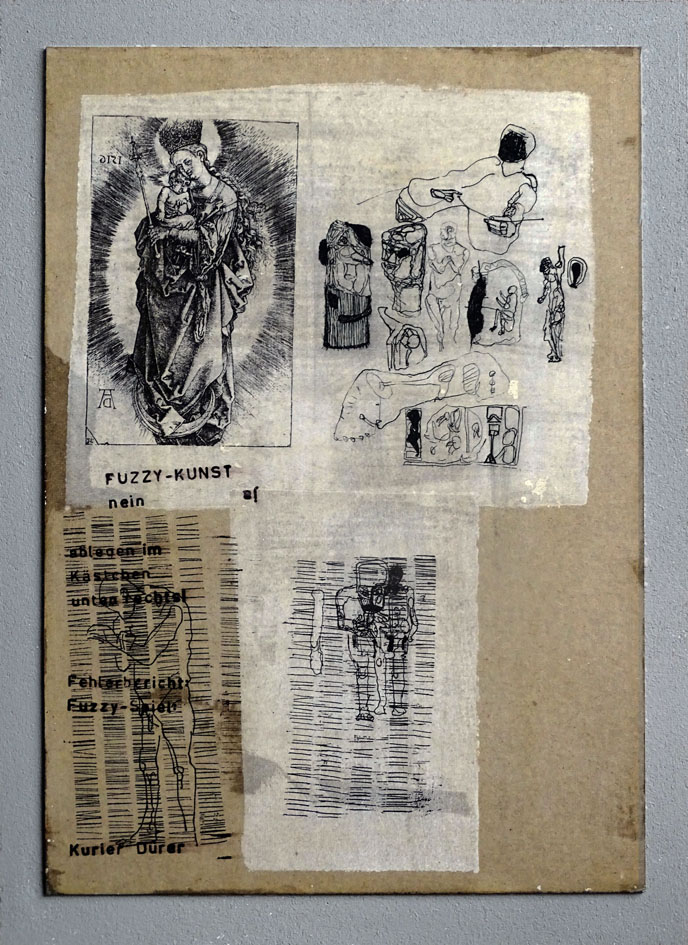 1516
AD
FUZZY-KUNST
nein
ja
ablegen im
Kästchen
unten rechts!
Fehlerbericht:
Fuzzy-Spiel:
Kurier Dürer